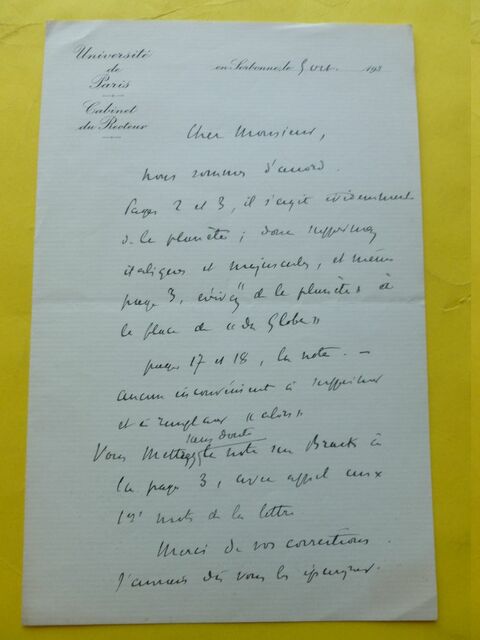 Université
de
Paris
Cabinet
du Recteur
en Sorbonne, le 5 oct. 193
Cher Monsieur,
nous sommes d'accord.
Pages 2 et 3, il s'agit évidemment
de la planète ; donc supprimez
italiques et majuscules, et même
page 3, écrivez "de la planète" à
la place de "du Globe"
pages 17 et 18, la note. —
aucun inconvénient à supprimer
et à remplacer "alors"
sans doute
Vous mettez la note sur Bruck à
la page 3, avec appel aux
1ers mots de la lettre
Merci de vos corrections.
J'aurais dû vous les épargner.